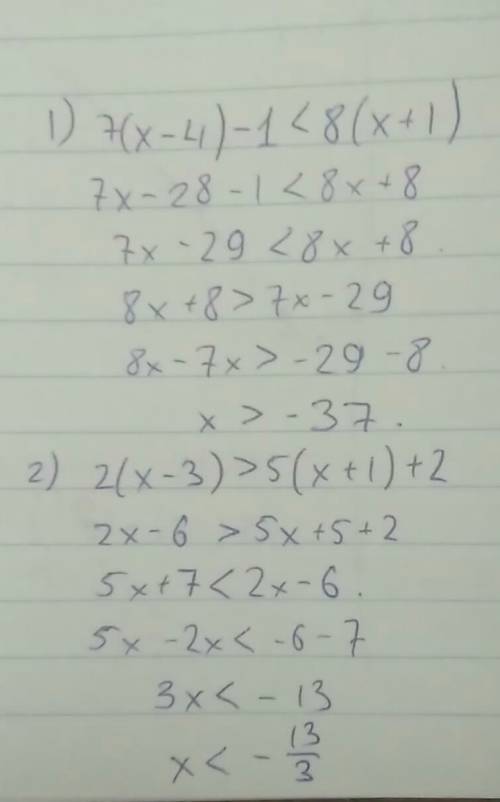 1) 7(x-4)-1<8(x+1)
7x-28-1<8x+8
7x-29<8x+8.
8x+8>7x-29
8x-7x>-29-8.
x>-37.
2) 2(x-3)>5(x+1)+2
2x-6>5x+5+2
5x+7<2x-6.
5x-2x<-6-7
3x<-13
x<-13/3